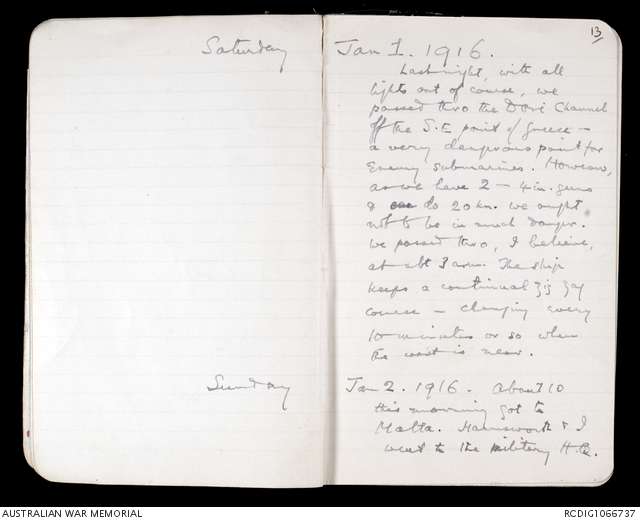 13
Saturday
Jan 1. 1916.
Last night, with all
lights out of course, we
passed thro the Dorè Channel
off the S.E point of Greece -
a very dangerous point for
Enemy submarines. However,
as we have 2 - 4 in. guns
& can do 20 kn. we ought
not to be in much danger.
We passed thro, I believe,
at abt 3 a.m. The ship
keeps a continual zig zag
course - changing every
10 minutes or so when
the coast is near.
Sunday
Jan 2. 1916. About 10
this morning got to
Malta. Harmsworth & I
went to the military H.Q.
AUSTRALIAN WAR MEMORIAL
RCDIG1066737